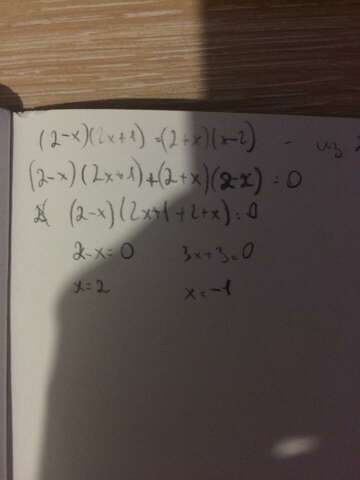 (2-x)(2x+1)=(2+x)(x-2) - из
(2-x)(2x+1)+(2+x)(2-x)=0
(2-x)(2x+1+2+x)=0
2-x=0 3x+3=0
x=2 x=-1